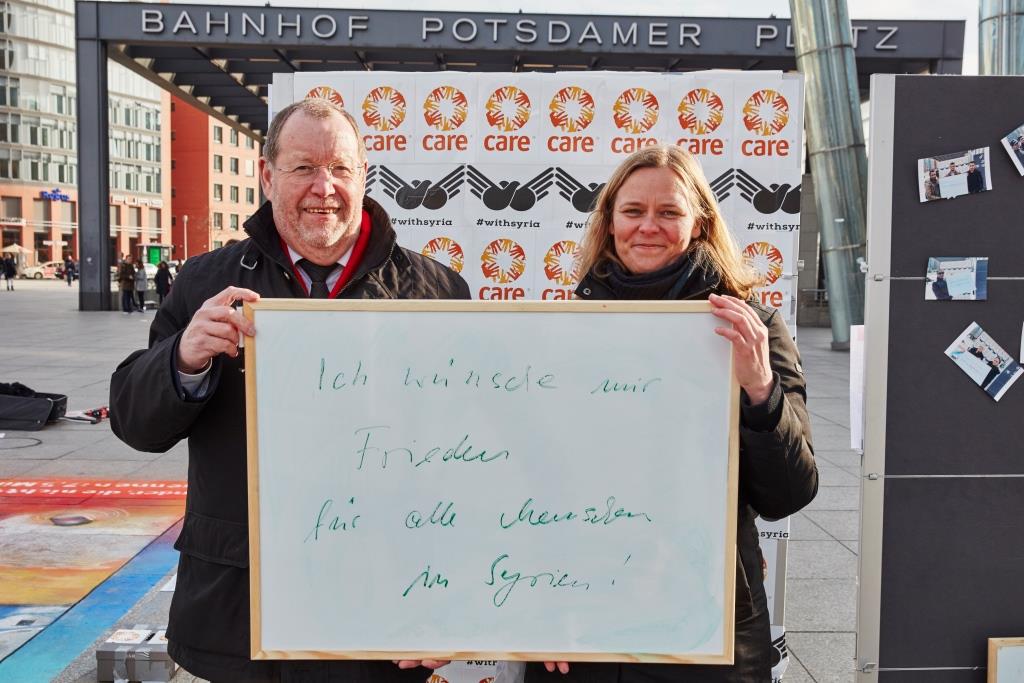 BAHNHOF POTSDAMER PLATZ
care care care care care care care
#withsyria #withsyria
care care care
Ich wünsche mir
Frieden
für alle Menschen
in Syrien!